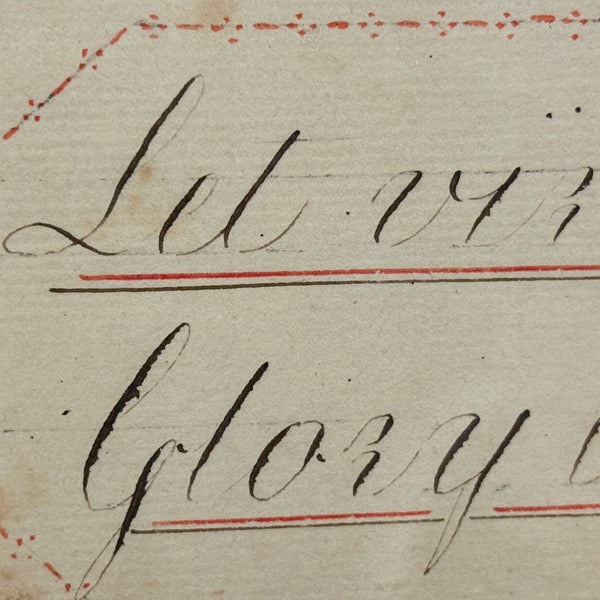 Let vir
Glory